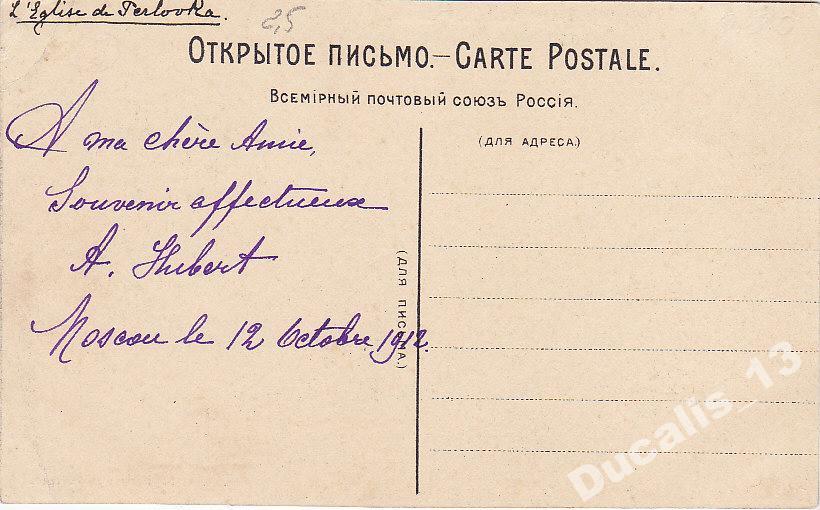 L'Eglise de Perlovka.
2,5
ОТКРЫТОЕ ПИСЬМО.—CARTE POSTALE.
ВСЕМІРНЫЙ ПОЧТОВЫЙ СОЮЗЪ РОССІЯ.
(ДЛЯ АДРЕСА.)
A ma chère Amie,
Souvenir affectueux
A. Hubert
Moscou le 12 Octobre 1912.
(ДЛЯ ПИСЬМА.)
Ducalis_13